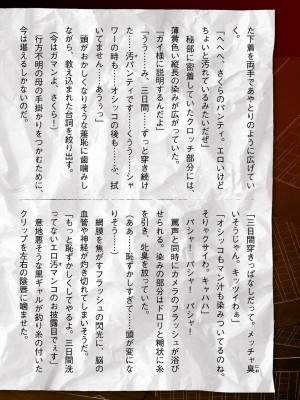 た下着を両手であやとりのように広げていく。
「へへへ、さくらのパンティ。エロいけどちょいと汚れているみたいだぜ」
秘部に密着していたクロッチ部分には、薄黄色い縦長の染みが広がっていた。
「カイ様に説明するんだよ」
「うう……み、三日間……ずっと穿き続けた……汚パンティです……くううっ……シャワーの時も……オシッコの後も……ふ、拭いてません……あうっ」
頭がおかしくなりそうな羞恥に歯噛みしながら、教え込まれた台詞を絞り出す。
(今はガマンよ、さくら！)
行方不明の母の手掛かりをつかむために、今は堪えるしかないのだ。
「三日間穿きっぱなしだって。メッチャ臭いそうじゃん。キッツイわぁ」
「オシッコもマン汁も染みついてるのね。そりゃクサイわ。キャハハ」
パシャー！　パシャー！　パシャー！
罵声と同時にカメラのフラッシュが浴びせられる。染みの部分はドロリと糊状に糸を引き、牝臭を放っていた。
(ああ……恥ずかしすぎて……頭が変になりそう……)
網膜を焦がすフラッシュの閃光に、脳の血管や神経が灼き切れてしまいそうだ。
「もっと恥ずかしくしてやるよ。三日間洗ってないエロ汚マンコのお披露目でぇす」
意地悪そうな黒ギャルが釣り糸の付いたクリップを左右の陰唇に噛ませた。